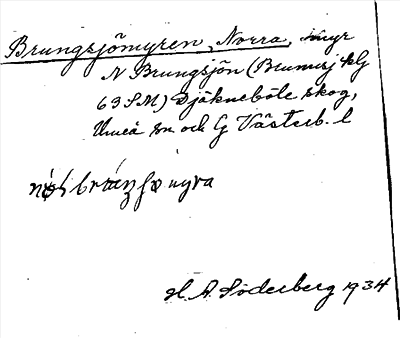 Brungsjömyren, Norra, myr
N Brungsjön (Brunnsj klG
63SM) Djäkneböle skog,
Umeå sn och G Västerb. l
H. A. Söderberg 1934